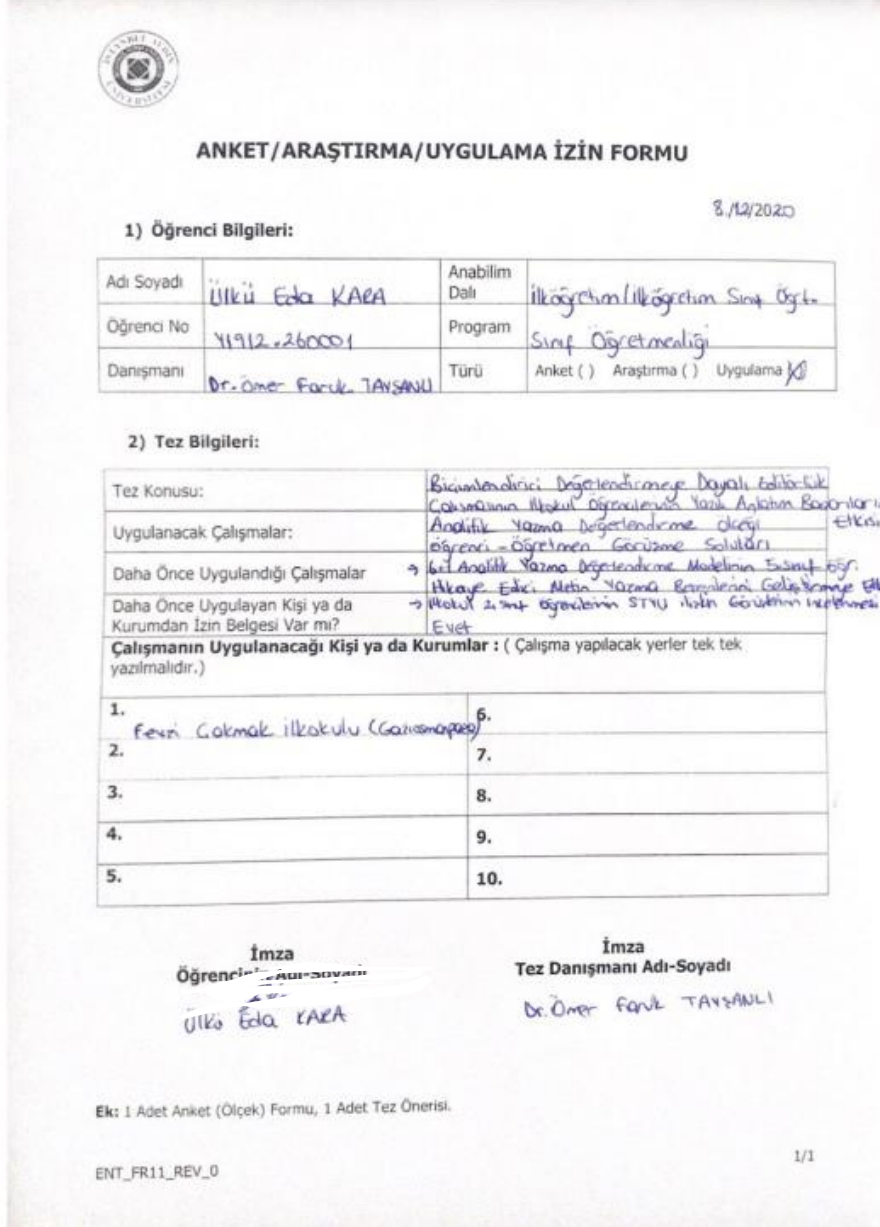 İSTANBUL AYDIN ÜNİVERSİTESİ
ANKET/ARAŞTIRMA/UYGULAMA İZİN FORMU
8./12/2020
1) Öğrenci Bilgileri:
Adı Soyadı Ülkü Eda KARA Anabilim Dalı İlköğretim/İlköğretim Sınıf Öğrt.
Öğrenci No Y1912.260001 Program Sınıf Öğretmenliği
Danışmanı Dr. Ömer Faruk TAVŞANLI Türü Anket ( ) Araştırma ( ) Uygulama (X)
2) Tez Bilgileri:
Tez Konusu: Biçimlendirici Değerlendirmeye Dayalı Editörlük
Çalışmasının İlkokul Öğrencilerinin Yazılı Anlatım Başarıların
Etkisi
Uygulanacak Çalışmalar: Analitik Yazma Değerlendirme Ölçeği
Öğrenci - Öğretmen Görüşme Soruları
Daha Önce Uygulandığı Çalışmalar → 6+1 Analitik Yazma Değerlendirme Modelinin 5.sınıf öğr.
Hikaye Edici Metin Yazma Becerilerini Geliştirmeye
Daha Önce Uygulayan Kişi ya da → İlkokul 2.sınıf öğrencilerinin STYU ilişkin Görüşlerinin incelenmesi
Kurumdan İzin Belgesi Var mı? Evet
Çalışmanın Uygulanacağı Kişi ya da Kurumlar : ( Çalışma yapılacak yerler tek tek
yazılmalıdır.)
1. Fevzi Çakmak İlkokulu (Gaziosmanpaşa) 6.
2. 7.
3. 8.
4. 9.
5. 10.
İmza İmza
Öğrencinin Adı-Soyadı Tez Danışmanı Adı-Soyadı
Ülkü Eda KARA Dr. Ömer Faruk TAVŞANLI
Ek: 1 Adet Anket (Ölçek) Formu, 1 Adet Tez Önerisi.
1/1
ENT_FR11_REV_0